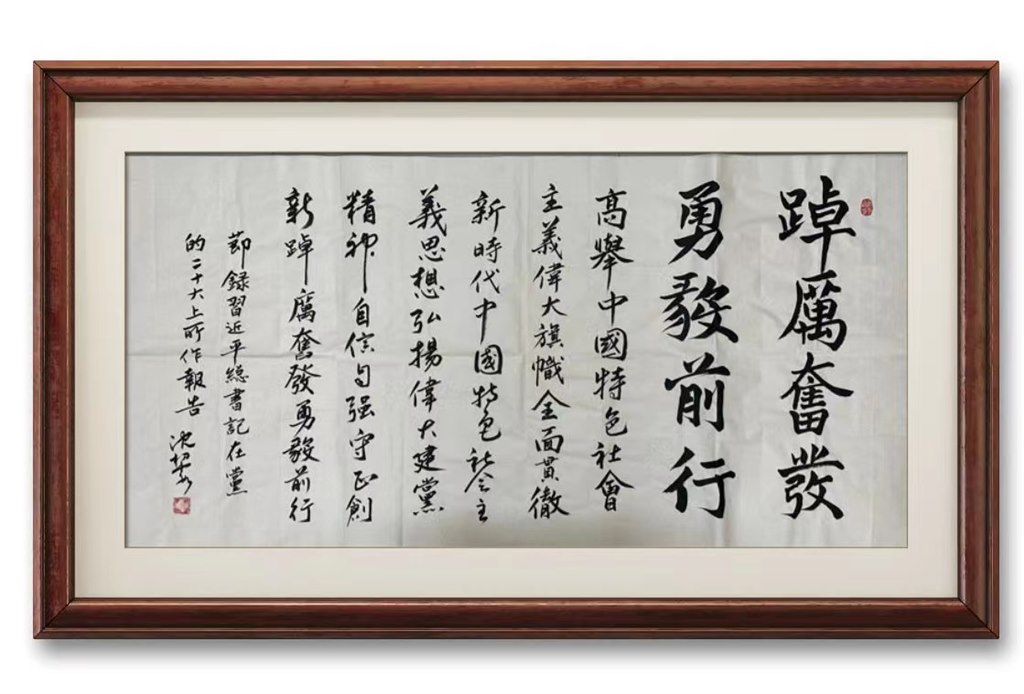 踔厲奮發
勇毅前行
高舉中國特色社會
主義偉大旗幟全面貫徹
新時代中國特色社会主
義思想弘揚偉大建黨
精神自信自强守正創
新踔厲奮發勇毅前行
節録習近平總書記在黨
的二十大上所作報告 沈